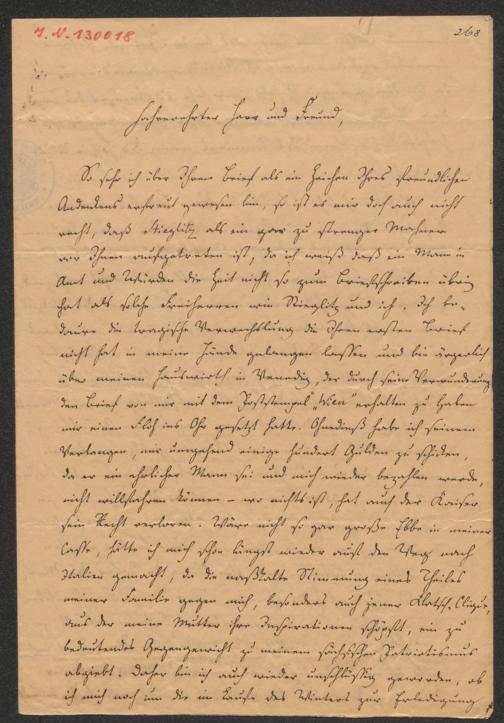 I. N. 130018
268
Hochverehrter Herr und Freund,
So sehr ich über Ihren Brief als ein Zeichen Ihres freundlichen
Andenkens erfreut gewesen bin, so ist es mir doch auch nicht
recht, daß Stieglitz als ein gar zu strenger Mahner
vor Ihnen aufgetreten ist, da ich weiß daß ein Mann in
Amt und Würden die Zeit nicht so zum Briefschreiben übrig
hat als solche Freiherren wie Stieglitz und ich. Ich be-
daure die tragische Verwechslung die Ihren ersten Brief
nicht hat in meine Hände gelangen lassen und bin ärgerlich
über meinen Hauswirth in Venedig, der durch seine Verwunderung
den Brief von mir mit dem Poststempel „Wien" erhalten zu haben
mir einen Floh ins Ohr gesetzt hatte. Ohnedieß habe ich seinem
Verlangen, mir umgehend einige hundert Gulden zu schicken,
da er ein ehrlicher Mann sei und mich wieder bezahlen werde,
nicht willfahren können – wo nichts ist, hat auch der Kaiser
sein Recht verloren. Wäre nicht so gar große Ebbe in meiner
Casse, hätte ich mich schon längst wieder auf den Weg nach
Italien gemacht, da die naßkalte Stimmung eines Theiles
meiner Familie gegen mich, besonders auch jener Klatsch-Clique,
aus der meine Mutter ihre Inspirationen schöpft, ein zu
bedeutendes Gegengewicht zu meinem sächsischen Patriotismus
abgiebt. Daher bin ich auch wieder unschlüssig geworden, ob
ich mich noch um die im Laufe des Winters zur Erledigung